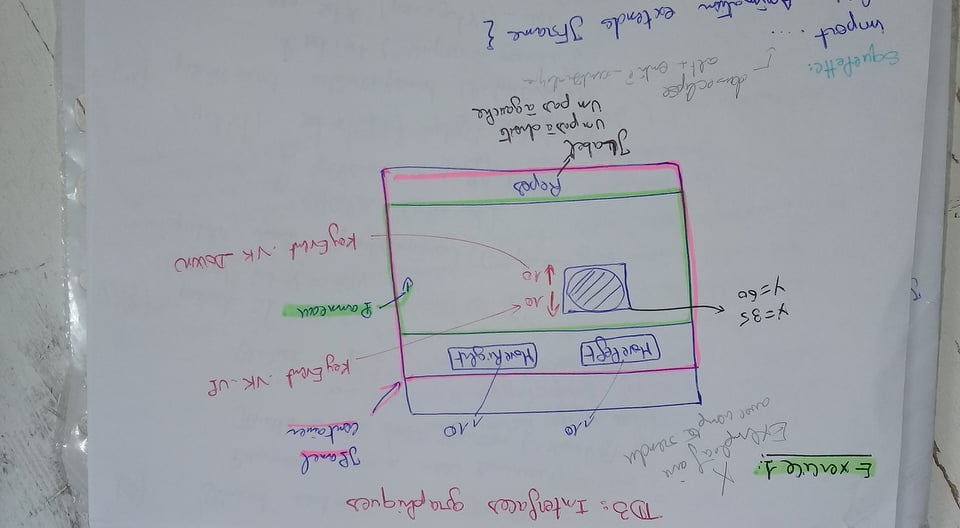 TD3: Interfaces graphiques
Exercice 1:
X
Exemple à faire
avec compte rendu
10
10
JPanel
container
MoveLeft
MoveRight
KeyEvent.VK_UP
X=35
Y=60
10
10
Panneau
KeyEvent.VK_DOWN
Repos
JLabel
Un pas à droite
Un pas à gauche
Squelette:
dans eclipse
alt +
import ....
Animation extends JFrame {